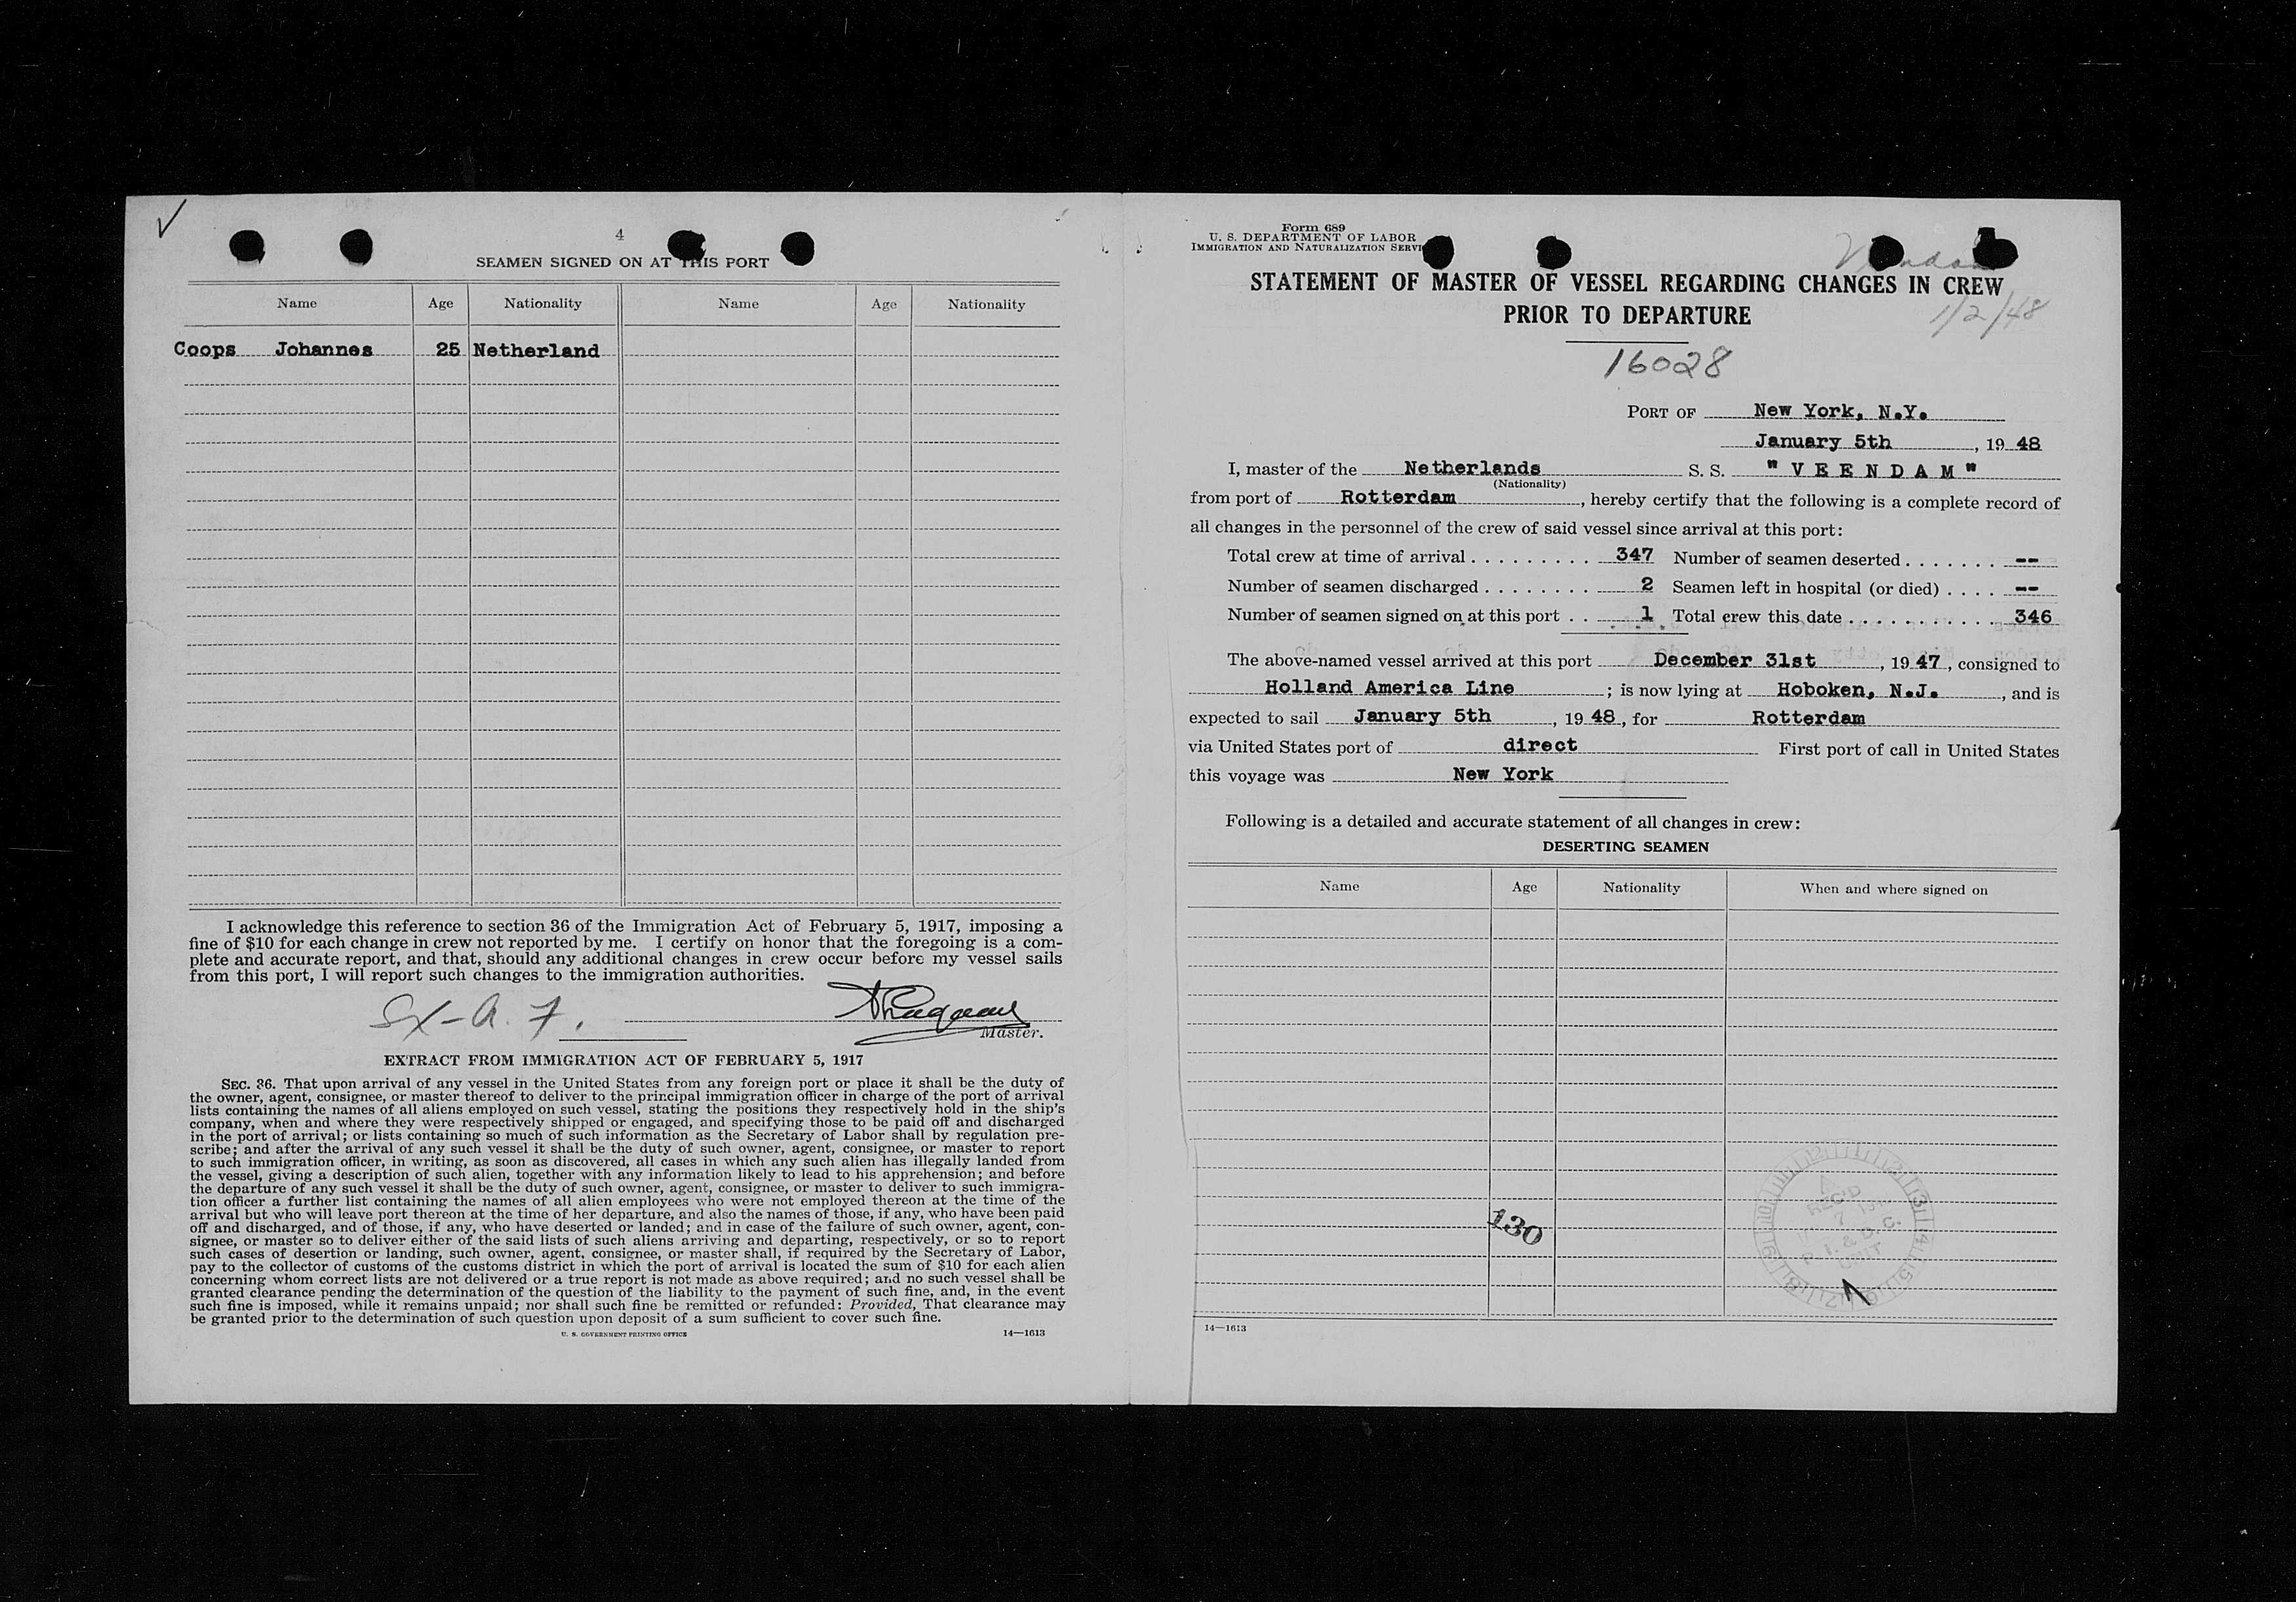 4
SEAMEN SIGNED ON AT THIS PORT
Name Age Nationality Name Age Nationality
Coops Johannes 25 Netherland
I acknowledge this reference to section 36 of the Immigration Act of February 5, 1917, imposing a
fine of $10 for each change in crew not reported by me. I certify on honor that the foregoing is a com-
plete and accurate report, and that, should any additional changes in crew occur before my vessel sails
from this port, I will report such changes to the immigration authorities.
Master.
EXTRACT FROM IMMIGRATION ACT OF FEBRUARY 5, 1917
SEC. 36. That upon arrival of any vessel in the United States from any foreign port or place it shall be the duty of
the owner, agent, consignee, or master thereof to deliver to the principal immigration officer in charge of the port of arrival
lists containing the names of all aliens employed on such vessel, stating the positions they respectively hold in the ship's
company, when and where they were respectively shipped or engaged, and specifying those to be paid off and discharged
in the port of arrival; or lists containing so much of such information as the Secretary of Labor shall by regulation pre-
scribe; and after the arrival of any such vessel it shall be the duty of such owner, agent, consignee, or master to report
to such immigration officer, in writing, as soon as discovered, all cases in which any such alien has illegally landed from
the vessel, giving a description of such alien, together with any information likely to lead to his apprehension; and before
the departure of any such vessel it shall be the duty of such owner, agent, consignee, or master to deliver to such immigra-
tion officer a further list containing the names of all alien employees who were not employed thereon at the time of the
arrival but who will leave port thereon at the time of her departure, and also the names of those, if any, who have been paid
off and discharged, and of those, if any, who have deserted or landed; and in case of the failure of such owner, agent, con-
signee, or master so to deliver either of the said lists of such aliens arriving and departing, respectively, or so to report
such cases of desertion or landing, such owner, agent, consignee, or master shall, if required by the Secretary of Labor,
pay to the collector of customs of the customs district in which the port of arrival is located the sum of $10 for each alien
concerning whom correct lists are not delivered or a true report is not made as above required; and no such vessel shall be
granted clearance pending the determination of the question of the liability to the payment of such fine, and, in the event
such fine is imposed, while it remains unpaid; nor shall such fine be remitted or refunded: Provided, That clearance may
be granted prior to the determination of such question upon deposit of a sum sufficient to cover such fine.
U. S. GOVERNMENT PRINTING OFFICE 14—1613
Form 689
U. S. DEPARTMENT OF LABOR
IMMIGRATION AND NATURALIZATION SERVI
STATEMENT OF MASTER OF VESSEL REGARDING CHANGES IN CREW
PRIOR TO DEPARTURE
1/2/48
16028
PORT OF New York, N.Y.
January 5th, 19 48
I, master of the Netherlands S. S. "VEENDAM"
(Nationality)
from port of Rotterdam, hereby certify that the following is a complete record of
all changes in the personnel of the crew of said vessel since arrival at this port:
Total crew at time of arrival 347 Number of seamen deserted --
Number of seamen discharged 2 Seamen left in hospital (or died) --
Number of seamen signed on at this port 1 Total crew this date 346
The above-named vessel arrived at this port December 31st, 19 47, consigned to
Holland America Line; is now lying at Hoboken, N.J., and is
expected to sail January 5th, 19 48, for Rotterdam
via United States port of direct First port of call in United States
this voyage was New York
Following is a detailed and accurate statement of all changes in crew:
DESERTING SEAMEN
Name Age Nationality When and where signed on
130
14—1613